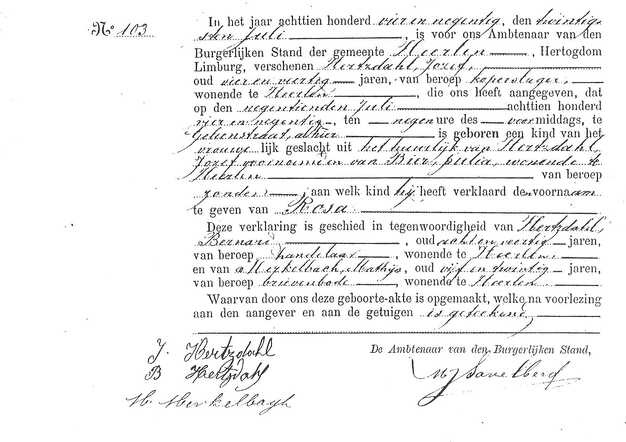 No 103
In het jaar achttien honderd vier en negentig, den twintig
sten Juli, is voor ons Ambtenaar van den
Burgerlijken Stand der gemeente Heerlen, Hertogdom
Limburg, verschenen Hertzdahl, Jozef,
oud vier en veertig jaren, van beroep koperslager,
wonende te Heerlen, die ons heeft aangegeven, dat
op den negentienden Juli achttien honderd
vier en negentig, ten negen ure des voormiddags, te
is geboren een kind van het
vrouwelijk geslacht uit het huwelijk van Hertzdahl,
Jozef voornoemd en van Bier, Julia, wonende te
Heerlen van beroep
zonder, aan welk kind hij heeft verklaard de voornaam
te geven van Rosa
Deze verklaring is geschied in tegenwoordigheid van Hertzdahl,
Bernard, oud acht en veertig jaren,
van beroep handelaar, wonende te Heerlen,
en van Merkelbach, Mathijs, oud vijf en twintig jaren,
van beroep brievenbode, wonende te Heerlen
Waarvan door ons deze geboorte-akte is opgemaakt, welke na voorlezing
aan den aangever en aan de getuigen is geteekend.
J. Hertzdahl
De Ambtenaar van den Burgerlijken Stand,
B Hertzdahl
M. Merkelbagh